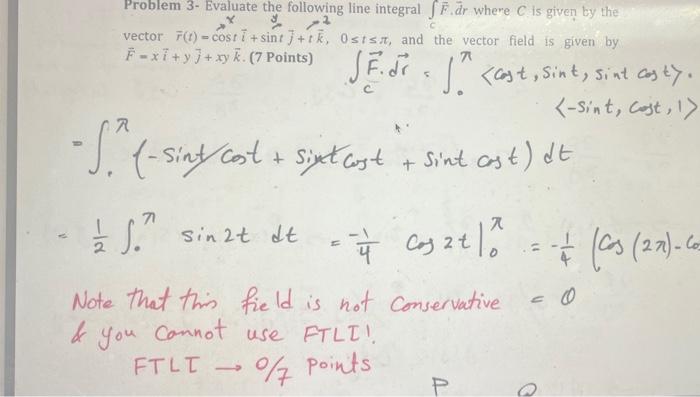 Problem 3- Evaluate the following line integral ∫_C F⃗.d⃗r where C is given by the
x y z
vector r⃗(t) = cost i⃗ + sint j⃗ + t k⃗, 0≤t≤π, and the vector field is given by
F⃗ = x i⃗ + y j⃗ + xy k⃗. (7 Points)
∫_C F⃗.dr⃗ = ∫_0^π <cost, sint, sint cost>.
<-sint, cost, 1>
= ∫_0^π (-sint cost + sint cost + sint cost) dt
= 1/2 ∫_0^π sin2t dt = -1/4 cos 2t |_0^π = -1/4 (cos(2π) - co
Note that this field is not conservative = 0
& you cannot use FTLI!
FTLI → 0/7 points
P Q